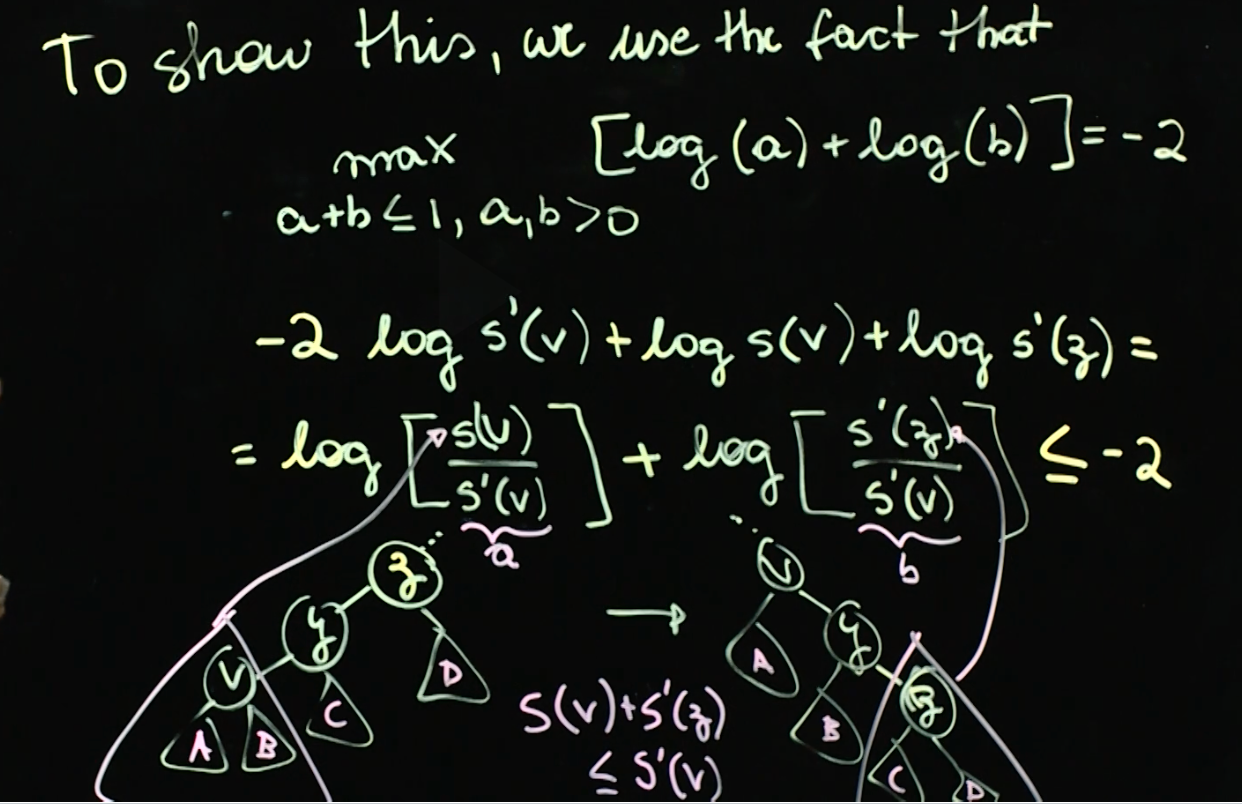 To show this, we use the fact that
max [log (a) + log (b)] = -2
a+b ≤ 1, a,b > 0
-2 log s'(v) + log s(v) + log s'(z) =
= log [s(v) / s'(v)] + log [s'(z) / s'(v)] ≤ -2
a b
z v
y → y
v D A z
A B C B C D
s(v) + s'(z)
≤ s'(v)